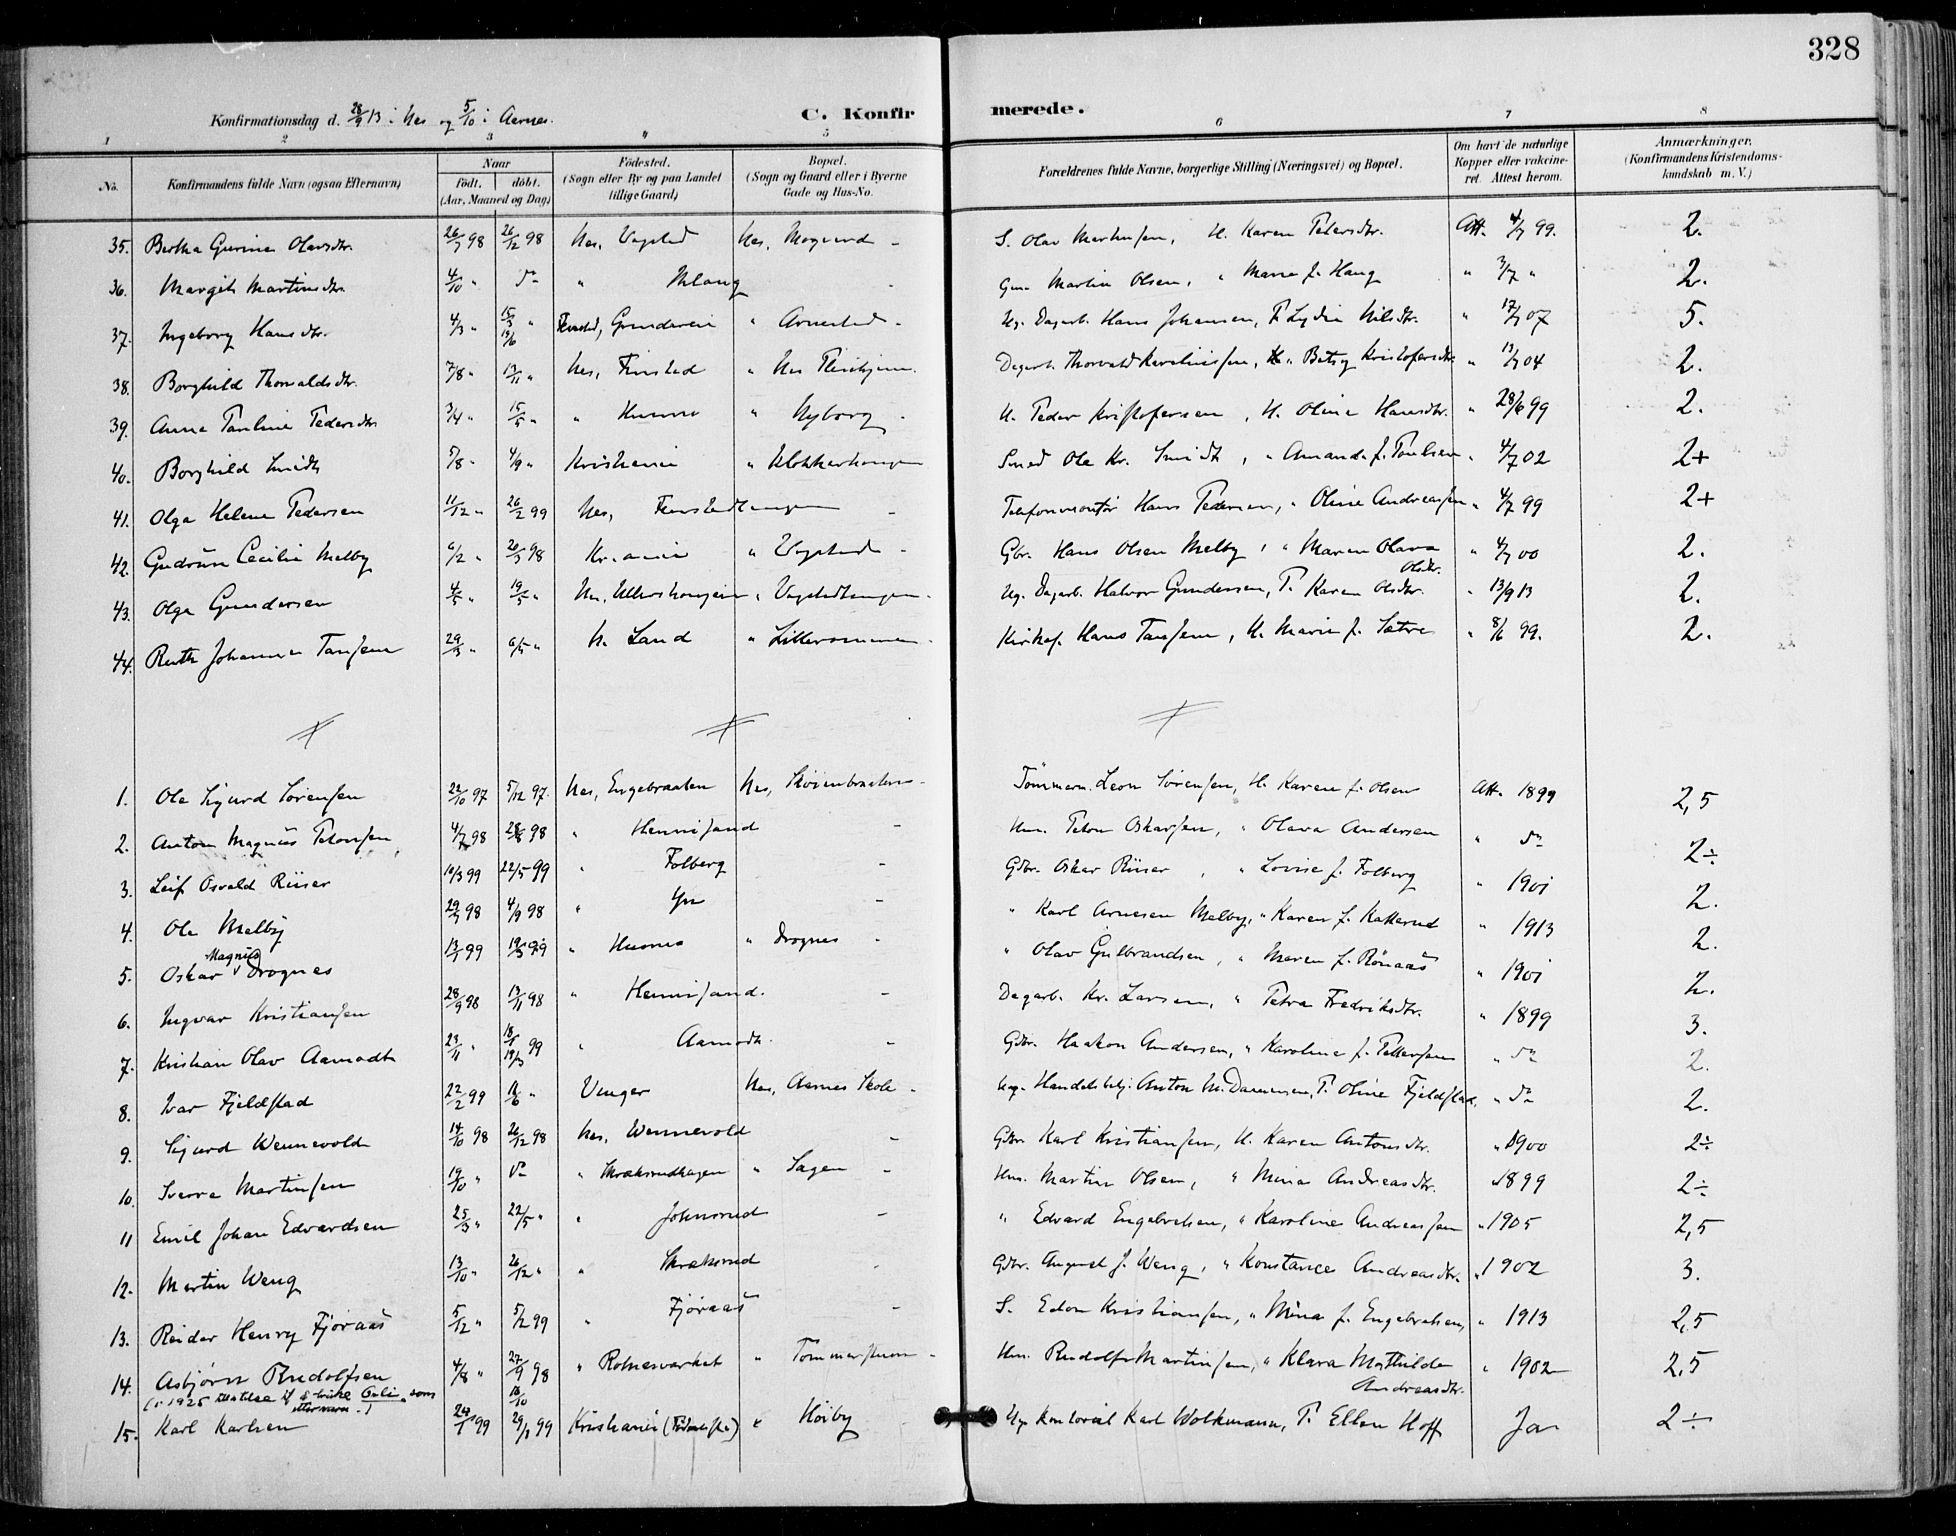 328
Konfirmationsdag d. 28/9 13 i Nes og 5/10 i Aarnes.
C. Konfirmerede.
1 2 3 " 5 6 7 8
No. Konfirmandens fulde Navn (ogsaa Efternavn) Naar født, døbt. (Aar, Maaned og Dag) Fødested. (Sogn eller By og paa Landet tillige Gaard) Bopæl. (Sogn og Gaard eller i Byerne Gade og Hus-No. Forældrenes fulde Navne, borgerlige Stilling (Næringsvei) og Bopæl. Om havt de naturlige Kopper eller vakcineret. Attest herom. Anmærkninger. (Konfirmandens Kristendomskundskab m. V.)
35. Bertha Gurine Olavsdtr. 26/7 98 26/12 98 Nes, Vogsted Nes, S. Olav, H. Karen Petersdtr. Att. 4/7 99. 2.
36. Margit Martinsdtr. 4/10 " do " Martin Olsen, " Marie f. Haug " 3/7 " 2.
37. Ingeborg Hansdtr. 4/3 " Finstad, " Aarnestad - Ug. Dagarb. Hans Johansen, P. Lydia Nilsdtr. " 17/7 07 5.
38. Borghild Thorvaldsdtr. 7/8 " 13/11 " Nes, Finstad " Nes Pleiehjem. Dagarb. Thorvald Karelinissen, " Betsy Kristofersdtr. " 13/7 04 2.
39. Anna Pauline Pedersdtr. 3/4 " 15/5 " " Hunnes " Nyborg - H. Peder Kristofersen, H. Oline Hansdtr. " 28/6 99 2.
40. Borghild Smidt 5/8 " 4/9 " Kristiania " Klokkerhaugen Smed Ole Kr. Smidt, " Amanda f. Poulsen " 4/7 02 2+
41. Olga Helene Pedersen 11/12 " 26/2 99 Nes, Finstadtangen - Telefonmontør Hans Pedersen, " Oline Andreassen " 4/7 99 2+
42. Gudrun Cecilie Melby 6/2 " 20/3 98 Kr.ania " Vogsted - Gbr. Hans Olsen Melby, " Maren Olava Olsdtr. " 4/7 00 2.
43. Olga Gundersen 4/5 " 19/5 " Nes. " Vogstadtangen - Ug. Dagarb. Halvor Gundersen, P. Karen Olsdtr. " 13/9 13 2.
44. Ruth Johanne Paussen 29/3 " 6/5 " N. Land " Lillerommen - Kirkes. Hans Paussen, H. Marie f. Sætre " 8/6 99. 2.
1. Ole Sigurd Sørensen 22/10 97 5/12 97. Nes, Engebraaten Nes, Skøienbraaten - Tømmerm. Leon Sørensen, H. Karen f. Olsen Att. 1899 2,5
2. Anton Magnus Petersen 4/7 98 28/8 98 " Hennisand - Hm. Peter Oskarsen, " Olava Andersen " do 2÷
3. Leif Osvald Riiser 10/3 99 22/5 99 " Folberg - Gdbr. Oskar Riiser, " Lovise f. Folberg " 1901 2.
4. Ole Melby 29/7 98 4/9 98 " - " Karl Arnesen Melby, " Karen f. Katterud " 1913 2.
5. Oskar Magnus Drognes 13/1 99 19/3 99 " Husmo " Drognes - " Olav Gulbrandsen, " Maren f. Rønaas " 1901 2.
6. Ingvar Kristiansen 28/9 98 13/11 98 " Hennisand. - Dagarb. Kr. Larsen, " Petra Fredriksdtr. " 1899 3.
7. Kristian Olav Aamodt 23/11 " " Aamodt. - Gdbr. Haakon Andersen, " Karoline f. Pettersen " do 2.
8. Ivar Fjeldstad 22/2 99 Vinger Nes, Aarnes Skole - Ug. Handelsbtj. Anton M. Danielsen, P. Oline Fjeldstad. " do 2.
9. Sigurd Wennevold 14/10 98 26/12 98 Nes, Wennevold - Gdbr. Karl Kristiansen, H. Karen Antonsdtr. " 1900 2÷
10. Sverre Martinsen 19/10 " do " Skræksrudhagen " Sagen - Hm. Martin Olsen, " Mina Andreasdtr. " 1899 2÷
11 Emil Johan Edvardsen 25/3 " 22/5 " " Johnsrud - " Edvard Engebretsen, " Karoline Andreassen " 1905 2,5
12. Martin Weng 13/10 " 26/12 " " Skræksrud - Gdbr. August J. Weng, " Konstance Andreasdtr. " 1902 3.
13. Reidar Henry Fjøraas 5/12 " 5/2 99 " Fjøraas - S. Edon Kristiansen, " Mina f. Engebretsen, " 1913 2,5
14. Asbjørn Rudolfsen 4/8 " 27/9 98 " Rotnesverket " - Hm. Rudolf Martinsen, " Klara Mathilde Andreasdtr. " 1902 2,5
(i 1925 tillatelse til å bruke Opli som etternavn.)
15. Karl Karlsen 29/1 99 Kristiania " Høiby Ug. Kontorist Karl Wolkmann, P. Ellen Hoff Ja 2÷